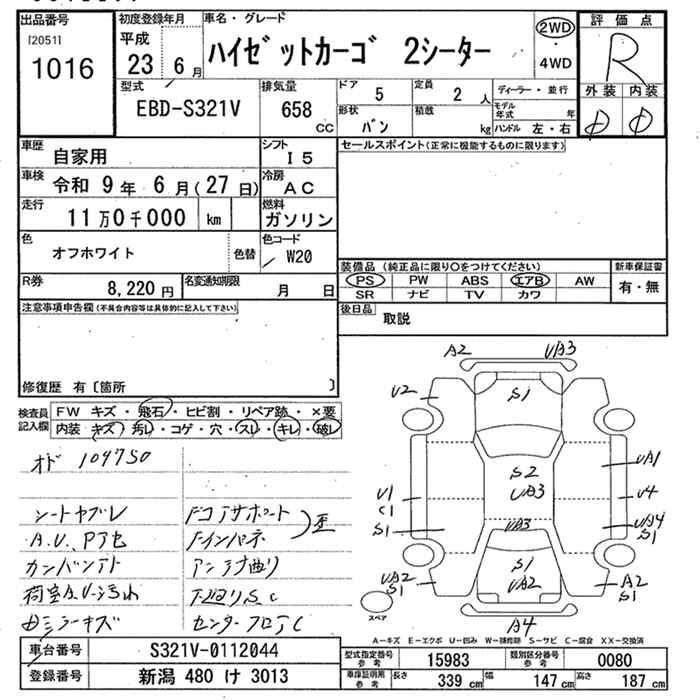 出品番号
[2051]
1016
初度登録年月
平成
23 6月
車名・グレード
ハイゼットカーゴ 2シーター
2WD
・
4WD
評価点
R
外装 内装
型式
EBD-S321V
排気量
658
cc
ドア
5
定員
2 人
形状
バン
積載
kg
ディーラー・並行
モデル年式 年
ハンドル 左・右
車歴
自家用
シフト
I5
車検
令和 9年 6月(27日)
冷房
AC
走行
11万0千000 km
燃料
ガソリン
色
オフホワイト
色替
色コード
W20
R券
8,220 円
名変通知期限
月 日
セールスポイント(正常に機能するものに限ります)
装備品(純正品に限り○をつけてください)
新車保証書
PS PW ABS エアB AW
有・無
SR ナビ TV カワ
後日品
取説
注意事項申告欄(不具合内容等は具体的に記入して下さい)
修復歴 有〔箇所 〕
検査員
記入欄
FW キズ・飛石・ヒビ割・リペア跡・×要
内装 キズ・汚レ・コゲ・穴・スレ・キレ・破レ
オド 109750
シートヤブレ
A.U、Pアセ
カンバンアト
荷室A.U・汚れ
ロミラーキズ
Fコアサポート
Fインパネ
アンテナ曲り
下廻りS.C
センターフロアC
A2
UA3
S1
U2
S2
UA3
UA1
U1
C1
U4
S1
UA3
UA4
S1
S1
UA2
UA2
S1
A2
S1
スペア
A4
A-キズ E-エクボ U-凹み W-補修跡 S-サビ C-腐食 XX-交換済
車台番号
S321V-0112044
登録番号
新潟 480 け 3013
型式指定番号
参考
15983
類別区分番号
参考
0080
車庫証明用
参考
長さ
339 cm
幅
147 cm
高さ
187 cm